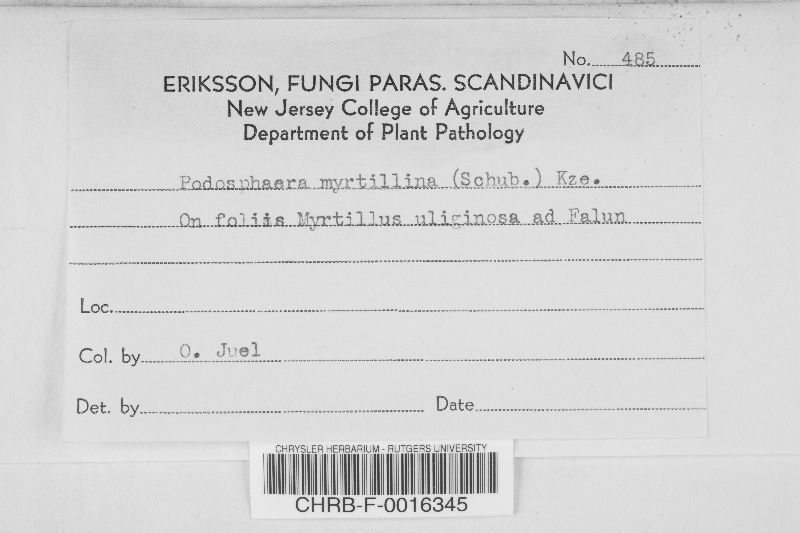 No. 485
ERIKSSON, FUNGI PARAS. SCANDINAVICI
New Jersey College of Agriculture
Department of Plant Pathology
Podosphaera myrtillina (Schub.) Kze.
On foliis Myrtillus uliginosa ad Falun
Loc.
Col. by O. Juel
Det. by Date
CHRYSLER HERBARIUM - RUTGERS UNIVERSITY
CHRB-F-0016345